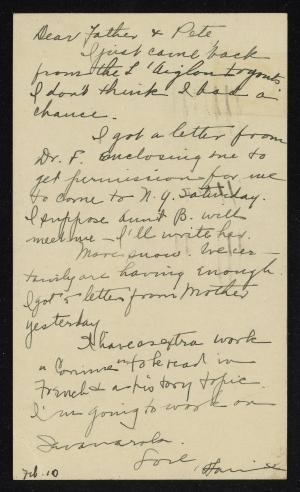 Dear Father & Pete
I just came back
from the L'Aiglon tryouts
I don't think I had a
chance.
I got a letter from
Dr. F. enclosing one to
get permission for me
to come to N.Y. Saturday.
I suppose Aunt B. will
meet me — I'll write her.
More snow. We cer-
tainly are having enough.
I got a letter from Mother
yesterday
I have as extra work
"Corinne" to be read in
French & a history topic.
I'm going to work on
Savanarola.
Love
Feb. 10